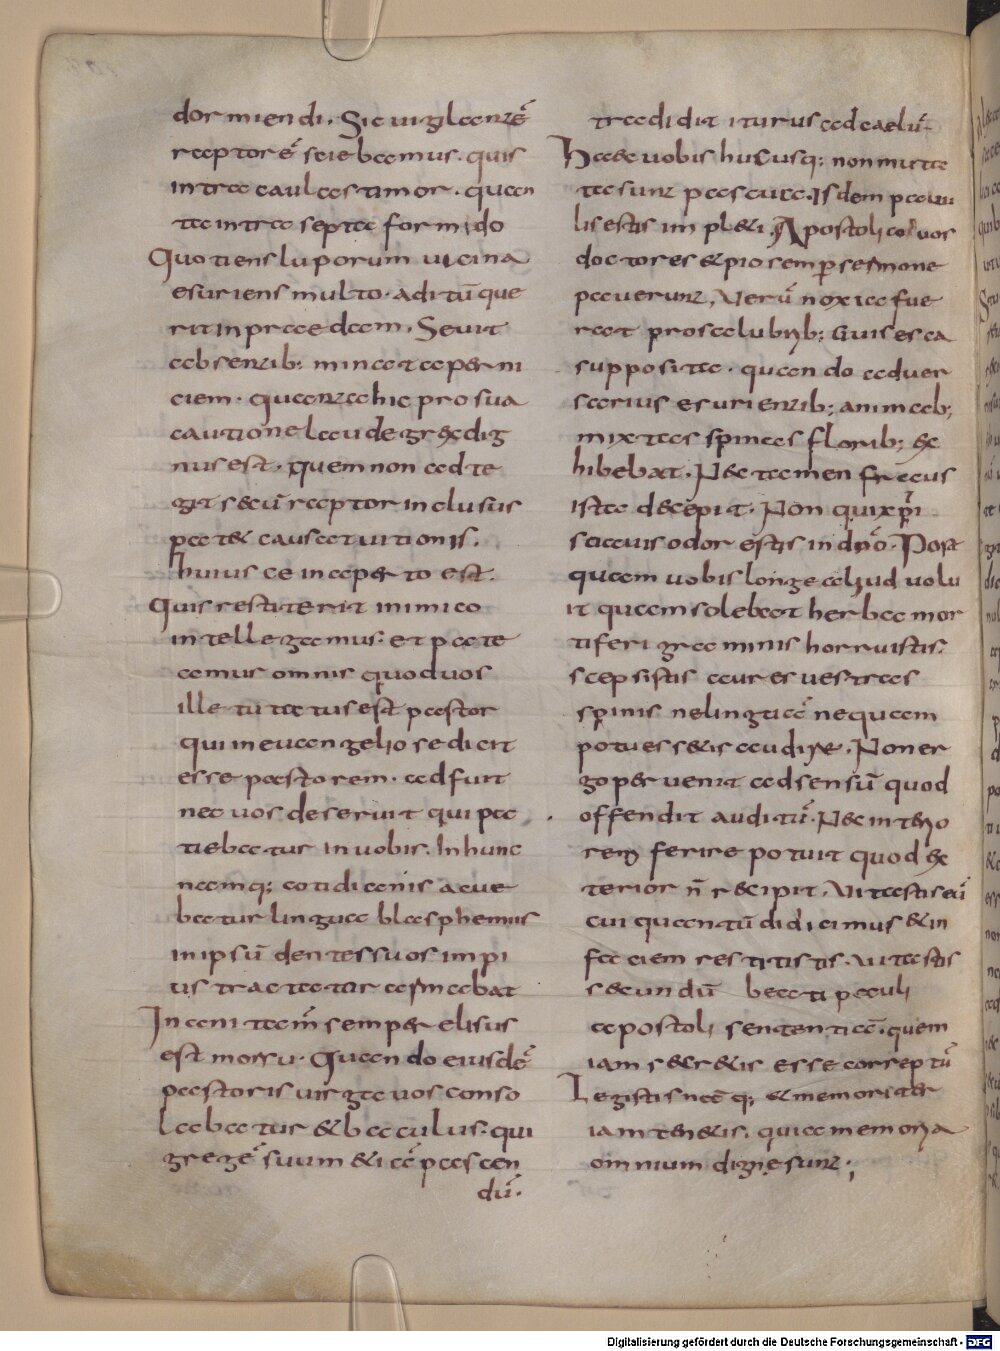 dormiendi. Sic uigilantē
raptorē sciebamus. quis
intra caulas timor. quan
ta intra septa formido
Quotiens luporum uicina
esuriens multo. aditū que
rit in praedam. Seuit
absentib; minatæ perni
ciem. quanta hic pro sua
cautione laude grex dig
nus est. quem non adte
git secū raptor inclusus
patet causa tuitionis.
huius ce incaperto est.
Quis restiterit inimico
intellegamus. et pate
camus omnis quod uos
ille tutatus est pastor
qui in euangelio se dicit
esse pastorem. ad fuit
nec uos deseruit qui pa
tiebatur in uobis. In hunc
namq; cotidianis acue
batur lingua blasphemus
in ipsū dentes suos impi
us tractatur armabat
In cauitatem semper elisus
est morsu. Quando eiusdē
pastoris uirga uos conso
labatur & baculus. qui
gregē suum etiā pascen
dū.
tradidit iturus ad caelū.
Haec uobis hucusq; non mutta
ta sunt pascua. Isdem paui
lis estis impleti. Apostolica uos
doctores & pio semper sermone
pauerunt. Verū noxia fue
rat pro salubrib; Guis esca
supposita. quando aduer
sarius esurientib; animab;
mixtas spinas florib; ex
hibebat. Nec tamen fraus
ista decepit. Non qui xpi
suauis odor estis in dn̄o. Post
quam uobis longe aliud uolu
it quam solebat herba mor
tiferi graminis horruistis.
saepsistis aures uestras
spinis ne linguā nequam
potuessetis audire. Non er
go peruenit ad sensū quod
offendit auditū. Nec interio
rem ferire potuit quod ex
terior n̄ recipit. Vitastis eū
cui quantū didicimus & in
faciem restitistis. Vitastis
secundū beati pauli
apostoli sententiā. quem
iam sciretis esse correptū
Legistis nāq; & memoriter
iam tenetis. quia memoria
omnium digne sunt;
Digitalisierung gefördert durch die Deutsche Forschungsgemeinschaft - DFG